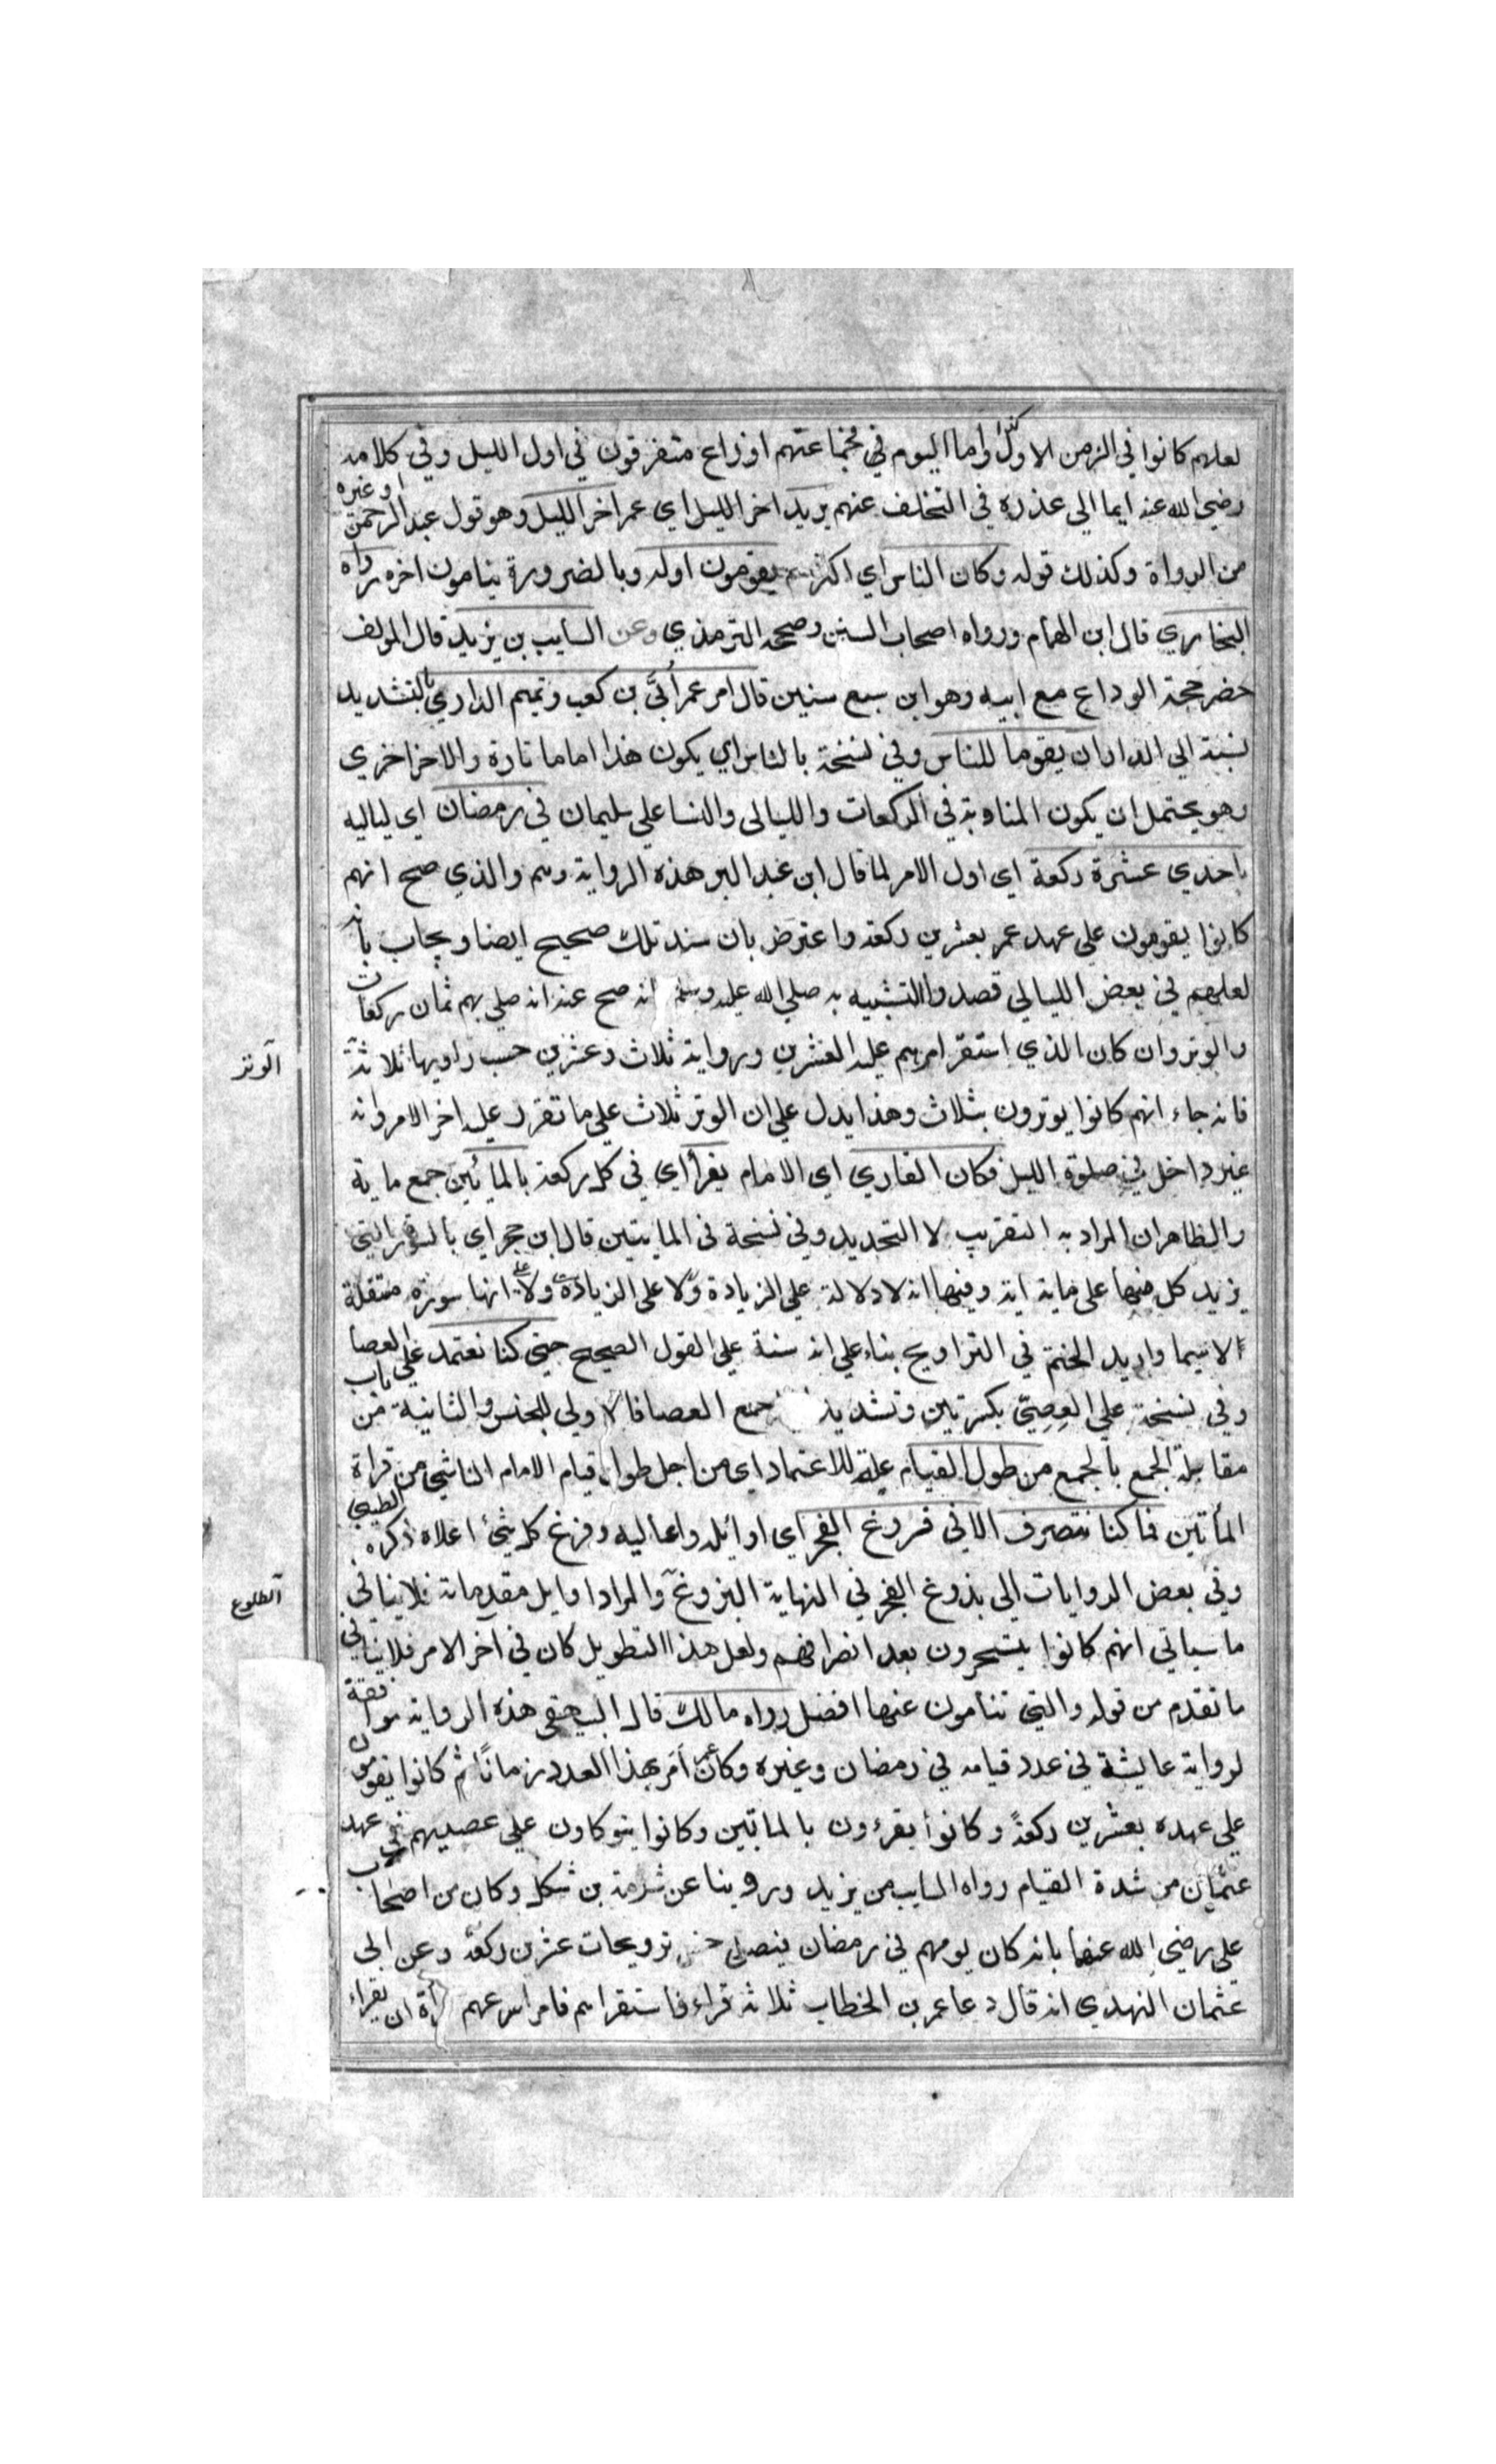 لعلهم كانوا في الزمن الاول كذلك واما اليوم في جماعتهم اوزاع متفرقون في اول الليل وفي كلامه
رضي الله عنه ايما الي عذره في التخلف عنهم يريد اخر الليل اي عمر اخر الليل وهو قول عبد الرحمن او غيره
من الرواة وكذلك قوله وكان الناس اي اكثرهم يقومون اوله وبالضرورة ينامون اخره رواه
البخاري قال ابن الهمام ورواه اصحاب السنن وصححه الترمذي وعن السايب بن يزيد قال المولف
حضر حجة الوداع مع ابيه وهو ابن سبع سنين قال امر عمر أبيَّ بن كعب وتميم الداري بالتشديد
نسبة الي الدار ان يقوما للناس وفي نسخة بالناس اي يكون هذا اماما تارة والاخر اخري
وهو يحتمل ان يكون المناوبة في الركعات والليالي والنسا علي سليمان في رمضان اي لياليه
باحدي عشرة ركعة اي اول الامر لما قال ابن عبد البر هذه الرواية وهم والذي صح انهم
كانوا يقومون علي عهد عمر بعشرين ركعة واعترض بان سند تلك صحيح ايضا ويجاب بانه
لعلهم في بعض الليالي قصدوا التشبيه به صلي الله عليه وسلم انه صح عنه انه صلي بهم ثمان ركعات
والوتر وان كان الذي استقر امرهم عليه العشرين ورواية ثلاث وعشرين حسب راويها ثلاثة
الوتر
فانه جاء انهم كانوا يوترون بثلاث وهذا يدل علي ان الوتر ثلاث علي ما تقرر عليه اخر الامر وانه
غير داخل في صلوة الليل فكان القاري اي الامام يقرأ اي في كل ركعة بالمائين جمع ماية
والظاهر ان المراد به التقريب لا التحديد وفي نسخة في المايتين قال ابن حجر اي بالسور التي
يزيد كل منها علي ماية اية وفيها انه لا دلالة علي الزيادة ولا علي الزيادة ولا علي انها سورة مستقلة
لا سيما واريد الختم في التراويح بناء علي انه سنة علي القول الصحيح حتي كنا نعتمد علي العصا
وفي نسخة علي العِصِيّ بكسرتين وتشديد جمع العصا فالاولي للجنس والثانية من باب
مقابلة الجمع بالجمع من طول القيام علة للاعتماد اي من اجل طول قيام الامام الناشي من قراة
المأتين فما كنا ننصرف الا في فروغ الفجر اي اوائله واعاليه وفرغ كل شئ اعلاه ذكره الطيبي
وفي بعض الروايات الي بذوغ الفجر في النهاية البزوغ والمراد اوايل مقدماته فلا ينافي
الطلوع
ما سياتي انهم كانوا يتسحرون بعد انصرافهم ولعل هذا التطويل كان في اخر الامر فلا ينافي
ما تقدم من قوله والتي تنامون عنها افضل رواه مالك قال البيهقي هذه الرواية موافقة
لرواية عايشة في عدد قيامه في رمضان وغيره وكان عمر أمر بهذا العدد زمانًا ثم كانوا يقومون
علي عهده بعشرين ركعةً وكانوا يقرءون بالماتين وكانوا يتوكاون علي عصيهم في عهد
عثمان من شدة القيام رواه السايب من يزيد وروينا عن شرمة بن شكل وكان من اصحاب
علي رضي الله عنه بانه كان يومهم في رمضان فيصلي خمس ترويحات عشرين ركعة وعن ابي
عثمان النهدي انه قال دعا عمر بن الخطاب ثلاثة قراء فاستقراهم فامر اسرعهم قراة ان يقراء